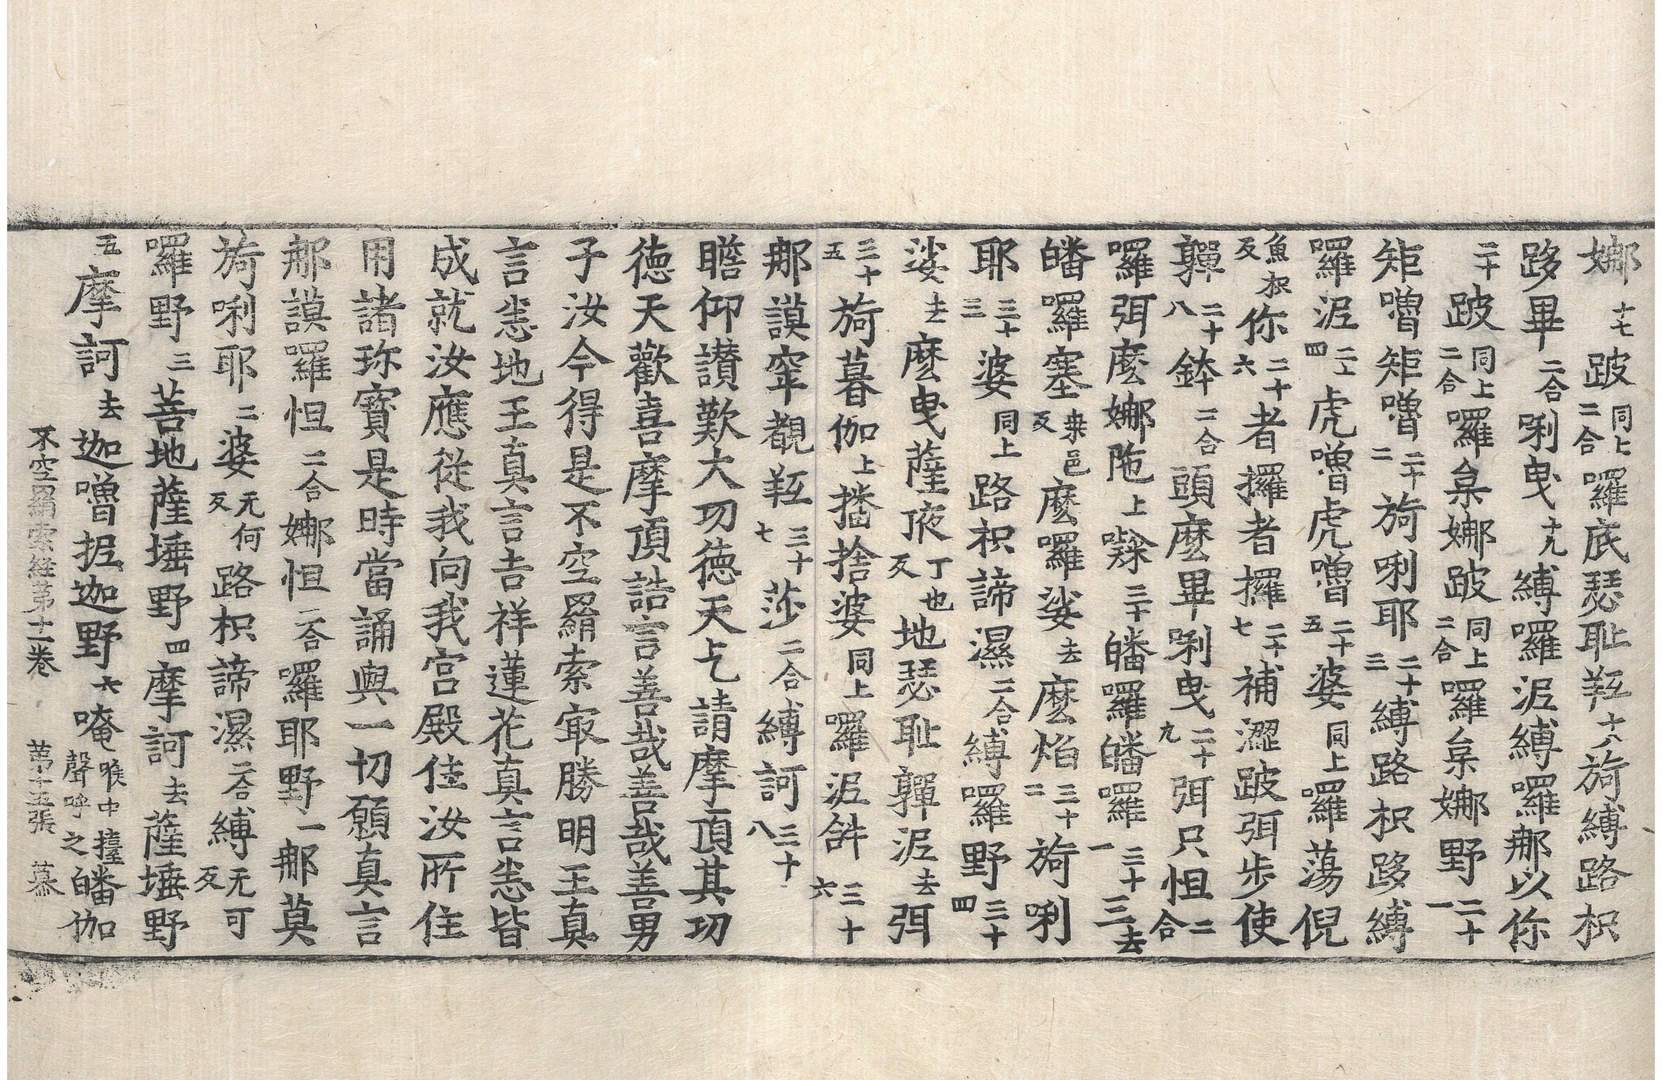 娜十七跛同上二合囉底瑟耻䩭十八旖縛路枳
路畢二合唎曳十九縛囉泥縛囉那以你
二十跛同上二合囉枲娜跛同上二合囉枲娜野二十一
矩嚕矩嚕二十二旖唎耶二十三縛路枳路縛
囉泥二十四虎嚕虎嚕二十五婆同上囉蕩倪
魚枳反你二十六者攞者攞二十七補澀跛弭步使
嚲二十八鉢二合頭麽畢唎曳二十九弭只怛二合
囉弭麽娜陁上𡄦三十皤囉皤囉三十一三去
皤囉塞桒邑反麽囉娑去麽焰三十二旖唎
耶三十三婆同上路枳諦濕二合縛囉野三十四
娑去麽曳薩𠇾丁也反地瑟耻嚲泥去弭
三十五旖暮伽上播捨婆同上囉泥𨦖三十六
那謨窣覩䩭三十七莎二合縛訶三十八
瞻仰讃歎大功徳天乞請摩頂其功
徳天歡喜摩頂誥言善哉善哉善男
子汝今得是不空羂索㝡勝明王真
言悉地王真言吉祥蓮花真言悉皆
成就汝應從我向我宮殿住汝所住
用諸珎寶是時當誦與一切願真言
那謨囉怛二合娜怛二合囉耶野一那莫
旖唎耶二婆无何反路枳諦濕二合縛无可反
囉野三菩地薩埵野四摩訶去薩埵野
五摩訶去迦嚕抳迦野六唵喉中擡聲呼之皤伽
不空羂索経第十一卷　第十五張　慕